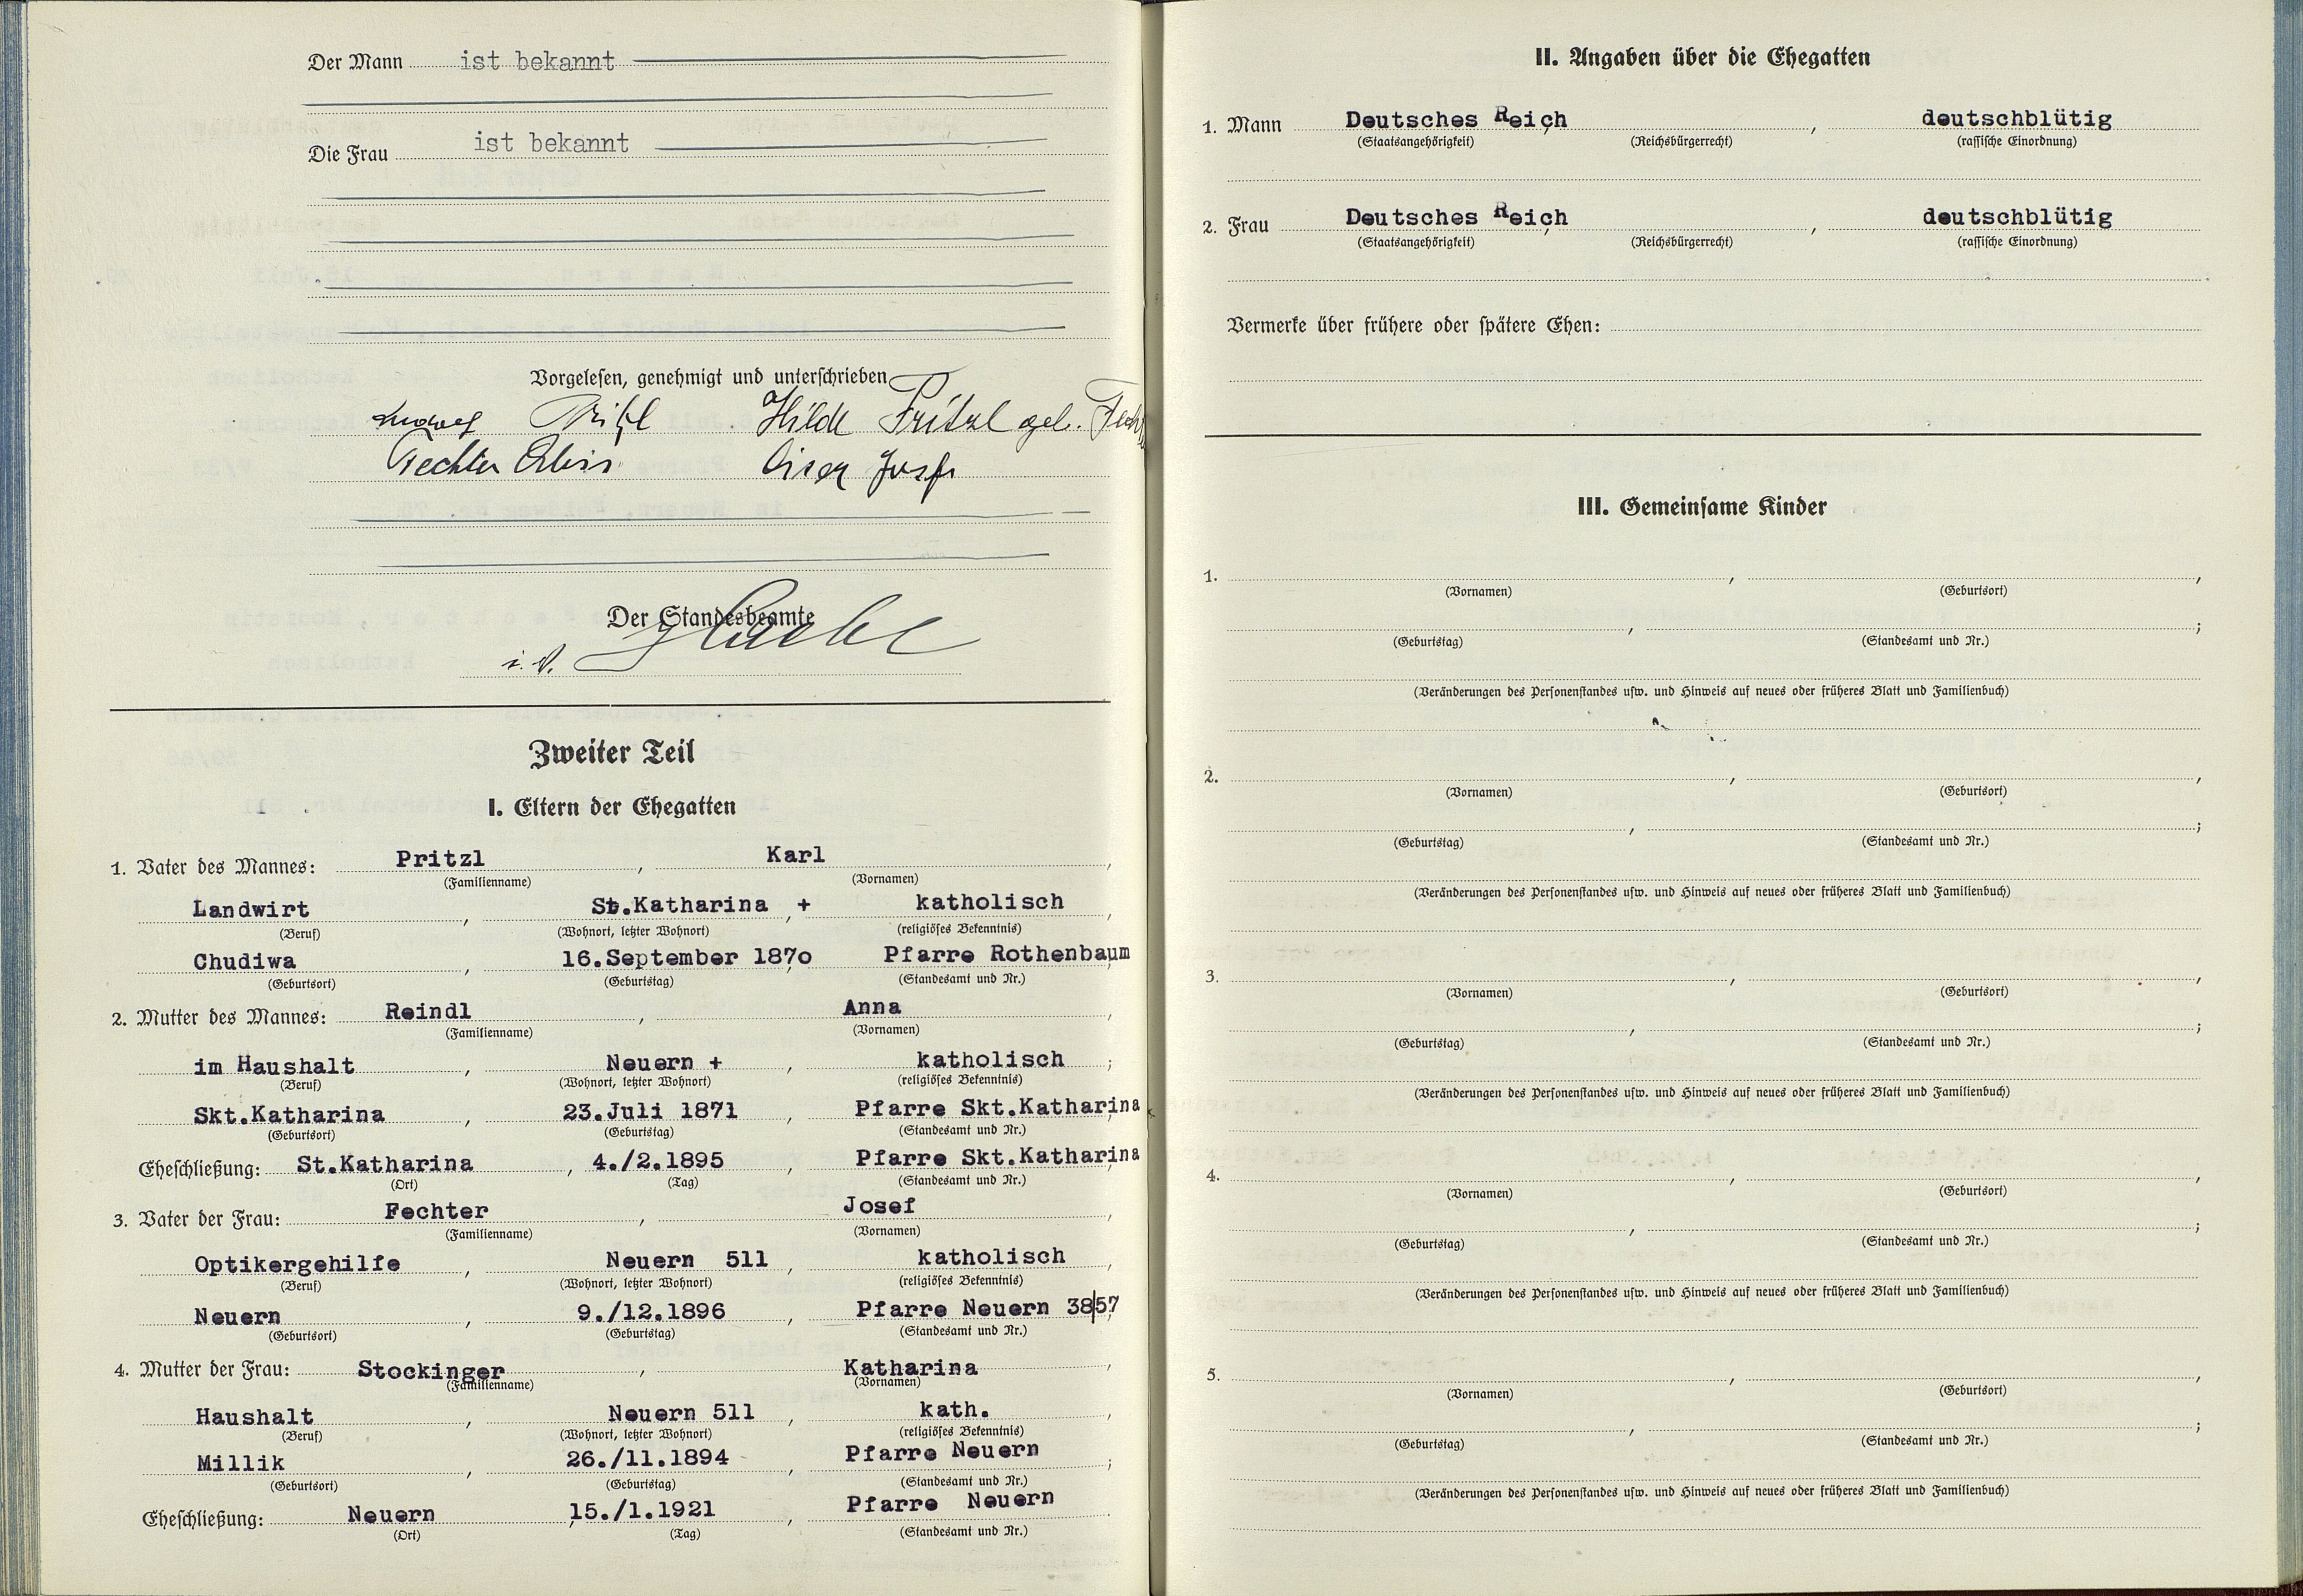 Der Mann ist bekannt
Die Frau ist bekannt
Vorgelesen, genehmigt und unterschrieben
Ludwig Pritzl Hilde Pritzl geb.
Fechter Josef
Der Standesbeamte
i.V.
Zweiter Teil
I. Eltern der Ehegatten
1. Vater des Mannes: Pritzl, Karl,
(Familienname) (Vornamen)
Landwirt, St.Katharina, + katholisch,
(Beruf) (Wohnort, letzter Wohnort) (religiöses Bekenntnis)
Chudiwa, 16.September 1870, Pfarre Rothenbaum
(Geburtsort) (Geburtstag) (Standesamt und Nr.)
2. Mutter des Mannes: Reindl, Anna,
(Familienname) (Vornamen)
im Haushalt, Neuern +, katholisch;
(Beruf) (Wohnort, letzter Wohnort) (religiöses Bekenntnis)
Skt.Katharina, 23.Juli 1871, Pfarre Skt.Katharina
(Geburtsort) (Geburtstag) (Standesamt und Nr.)
Eheschließung: St.Katharina, 4./2.1895, Pfarre Skt.Katharina
(Ort) (Tag) (Standesamt und Nr.)
3. Vater der Frau: Fechter, Josef,
(Familienname) (Vornamen)
Optikergehilfe, Neuern 511, katholisch,
(Beruf) (Wohnort, letzter Wohnort) (religiöses Bekenntnis)
Neuern, 9./12.1896, Pfarre Neuern 38/57
(Geburtsort) (Geburtstag) (Standesamt und Nr.)
4. Mutter der Frau: Stockinger, Katharina,
(Familienname) (Vornamen)
Haushalt, Neuern 511, kath.,
(Beruf) (Wohnort, letzter Wohnort) (religiöses Bekenntnis)
Millik, 26./11.1894, Pfarre Neuern;
(Geburtsort) (Geburtstag) (Standesamt und Nr.)
Eheschließung: Neuern, 15./1.1921, Pfarre Neuern
(Ort) (Tag) (Standesamt und Nr.)
II. Angaben über die Ehegatten
1. Mann Deutsches Reich, deutschblütig
(Staatsangehörigkeit) (Reichsbürgerrecht) (rassische Einordnung)
2. Frau Deutsches Reich, deutschblütig
(Staatsangehörigkeit) (Reichsbürgerrecht) (rassische Einordnung)
Vermerke über frühere oder spätere Ehen:
III. Gemeinsame Kinder
1. , ,
(Vornamen) (Geburtsort)
, ;
(Geburtstag) (Standesamt und Nr.)
(Veränderungen des Personenstandes usw. und Hinweis auf neues oder früheres Blatt und Familienbuch)
2. , ,
(Vornamen) (Geburtsort)
, ;
(Geburtstag) (Standesamt und Nr.)
(Veränderungen des Personenstandes usw. und Hinweis auf neues oder früheres Blatt und Familienbuch)
3. , ,
(Vornamen) (Geburtsort)
, ;
(Geburtstag) (Standesamt und Nr.)
(Veränderungen des Personenstandes usw. und Hinweis auf neues oder früheres Blatt und Familienbuch)
4. , ,
(Vornamen) (Geburtsort)
, ;
(Geburtstag) (Standesamt und Nr.)
(Veränderungen des Personenstandes usw. und Hinweis auf neues oder früheres Blatt und Familienbuch)
5. , ,
(Vornamen) (Geburtsort)
, ;
(Geburtstag) (Standesamt und Nr.)
(Veränderungen des Personenstandes usw. und Hinweis auf neues oder früheres Blatt und Familienbuch)